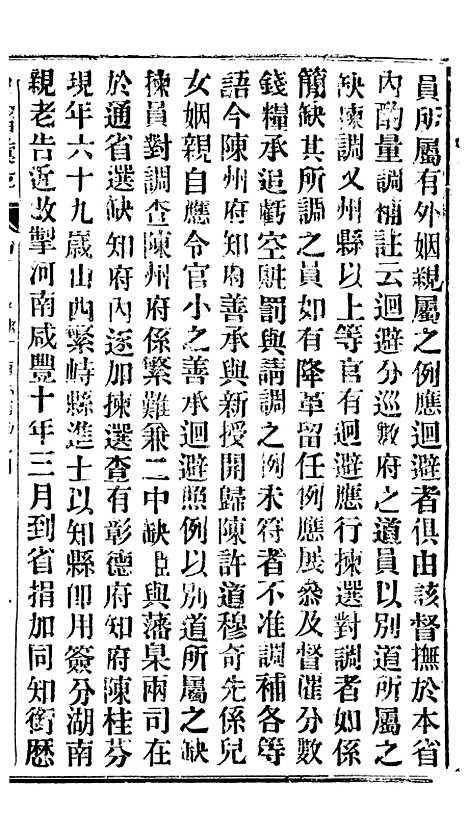 員所屬有外姻親屬之例應迴避者俱由該督撫於本省
內酌量調補註云迴避分巡數府之道員以別道所屬之
缺揀調又州縣以上等官有迴避應行揀選對調者如係
簡缺其所調之員如有降革留任例應展參及督催分數
錢糧承追虧空賠罰與請調之例未符者不准調補各等
語今陳州府知府善承與新授開歸陳許道穆奇先係兒
女姻親自應令官小之善承迴避照例以別道所屬之缺
揀員對調查陳州府係繁難兼二中缺臣與藩臬兩司在
於通省選缺知府內逐加揀選查有彰德府知府陳桂芬
現年六十九歲山西繁峙縣進士以知縣即用簽分湖南
親老告近改掣河南咸豐十年三月到省捐加同知銜歷